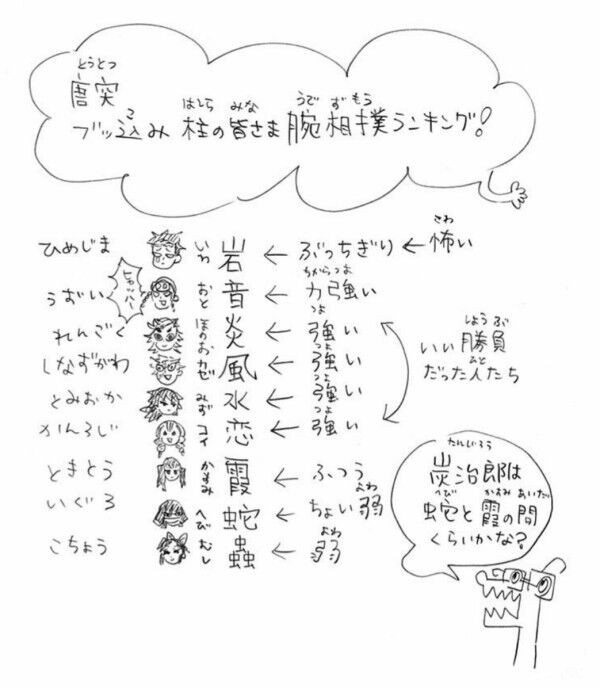 とうとつ
唐突
こ はしら みな うで ずもう
ブッ込み 柱の皆さま腕相撲ランキング!
ひめじま いわ 岩 ← ぶっちぎり ← 怖い
こわ
ヒャッハー
うずい おと 音 ← 力強い
ちからづよ
れんごく ほのお 炎 ← 強い
つよ
しなずがわ カゼ 風 ← 強い
つよ
とみおか みず 水 ← 強い
つよ
かんろじ コイ 恋 ← 強い
つよ
しょうぶ
いい勝負
ひと
だった人たち
ときとう かすみ 霞 ← ふつう
いぐろ へび 蛇 ← ちょい弱
よわ
こちょう むし 蟲 ← 弱
よわ
たんじろう
炭治郎は
へび かすみ あいだ
蛇と霞の間
くらいかな?